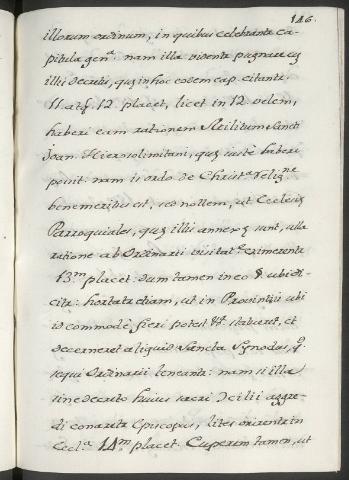 146.
illorum ordinum, in quibus celebrantr ca-
pitula gena. nam illa videntr pugnare cu
illis decretis, quæ in hoc eodem cap. citantr.
11. atq 12. placet, licet in 12. velem,
haberi eam rationem Militum Sancti
Joan. Hierosolimitani, quæ iuste haberi
possit: nam is ordo de Christa Religne
benemeritus est, sed nollem, ut Ecclesiæ
Parroquiales, quæ illis annexæ sunt, ulla
ratione ab Ordinarii visitate eximerentr
13m placet: dum tamen in eo § ubi di-
citr: hortatr etiam, ut in Provintiis ubi
id commodè fieri potest &t. staturet, et
decerneret aliquid Sancta Synodus, q.
sequi Ordinarii teneantr: nam si illa
sine decreto huius sacri Cilii aggre-
di conaretr Episcopus, lites orirentr in
Eccla. 14m placet. Cuperem tamen, ut